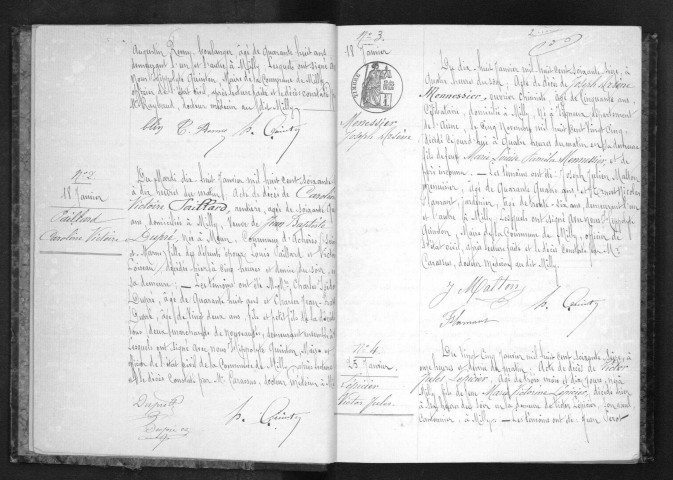 Augustin Remy, boulanger, âgé de Quarante huit ans
demeurant l'un et l'autre à Milly. Lesquels ont signé avec
Nous Hippolyte Quinton, Maire de la Commune de Milly
officier de l'Etat civil, après lecture faite et le décès constaté par
Mr docteur médecin au dit Milly
Remy h. Quinton
No 2
18 Janvier
Paillard
Caroline Victoire
Du Mardi dix huit Janvier mil huit cent soixante
à dix heures du matin. Acte de décès de Caroline
Victoire Paillard, rentière, âgée de soixante
ans domiciliée à Milly, veuve de Jean Baptiste
Dupré, Née à Meun, Commune d'Achères
et Marne, fille des défunts époux Louis Paillard et Victoire
décédée hier à cinq heures et demie du soir, en
sa demeure. — Les témoins ont été M.M. Charles Victor
Dupré, âgé de Quarante huit ans et
Dupré, âgé de Vingt deux ans, fils et petit fils de la décédée
tous deux marchands de nouveautés, demeurant ensemble à
Lesquels ont signé avec Nous Hippolyte Quinton, Maire
officier de l'Etat civil de la Commune de Milly, après lecture
et le décès constaté par Mr Carassus, docteur médecin à Milly
Dupré
h. Quinton
Dupré
No 3.
18 Janvier
TIMBRE
Menessier,
Joseph
2
Du dix huit Janvier mil huit cent soixante seize, à
Quatre heures du soir. Acte de décès de Joseph
Menessier, ouvrier âgé de Cinquante ans,
Célibataire, domicilié à Milly, Né à département
de l'Aisne, le Cinq Novembre mil huit cent Vingt Cinq,
décédé Aujourd'hui à Quatre heures du matin en sa demeure
fils de Marie Louise Menessier, et de
père inconnu. — Les témoins ont été Joseph Julien Matton
menuisier, âgé de Quarante Quatre ans et Nicolas
Flamant, jardinier, âgé de soixante dix ans, demeurant l'un
et l'autre à Milly. Lesquels ont signé avec Nous Hippolyte
Quinton, Maire de la Commune de Milly, officier de
l'Etat civil, après lecture faite et le décès constaté par Mr
Carassus, docteur médecin au dit Milly.
J Matton
h. Quinton
Flamant
No 4.
25 Janvier.
Lépicier
Victor Jules
Du Vingt Cinq Janvier mil huit cent soixante seize, à
onze heures et demie du matin. Acte de décès de Victor
Jules Lépicier, âgé de trois mois et dix jours, né à
Milly, fils de Marie Victorine Lépicier, décédé hier
à heures du soir en la demeure de Victor Lépicier, son aïeul
Cantonnier, à Milly. — Les témoins ont été Jean